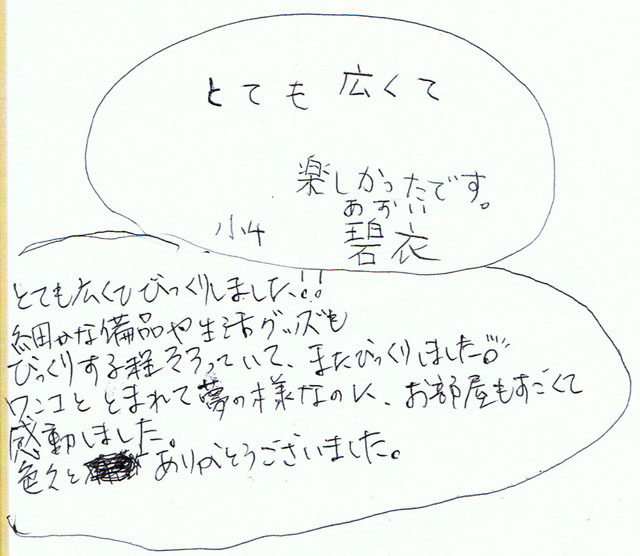 とても広くて
楽しかったです。
あおい
小4 碧衣
とても広くてびっくりしました!!
細かな備品や生活グッズも
びっくりする程そろっていて、またびっくりしました!!
ワンコととまれて夢の様なのに、お部屋もすごくて
感動しました。
色々と ありがとうございました。